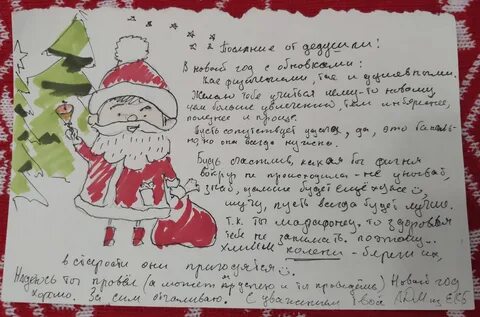 Послание от дедушки!
В новый год с обновками:
как физическими, так и душевными.
Желаю тебе учиться чему-то новому,
чем больше увлечений, тем интереснее,
полезнее и проще.
Пусть сопутствует удача, да, это баналь-
но, но она всегда нужна.
Будь счастлив, какая бы фигня
вокруг не происходила - не унывай,
знай, дальше будет ещё хуже
шучу, пусть всегда будет лучше.
т.к. ты марафонец, то здоровья
тебе не занимать, поэтому..
колени - береги их,
в старости они пригодятся
Надеюсь ты провёл (а может и проведёшь) Новый год
хорошо. За сим откланиваю. С уважением твой ЛДМ из ЕКБ